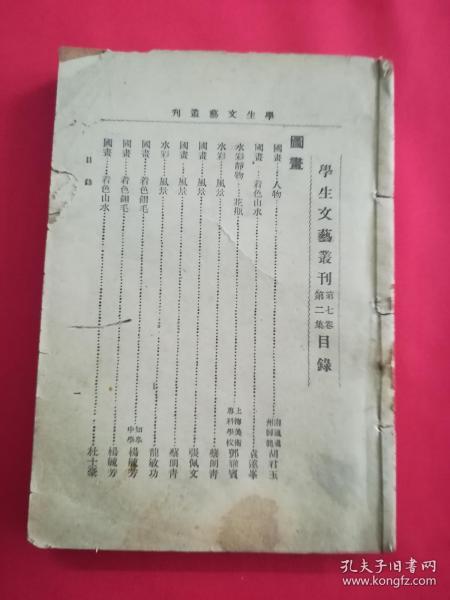 學生文藝叢刊
學生文藝叢刊 第七卷 第二集 目錄
圖畫
國畫……人物……胡君玉
國畫……着色山水……袁
水彩靜物……花瓶……上海美術專科學校 鄧
水彩……風景……蔡朗青
國畫……風景……張佩文
國畫……風景……蔡朗青
水彩……風景……龍敏功
國畫……着色翎毛……如皋中學 楊毓芳
國畫……着色翎毛……楊毓芳
國畫……着色山水……杜
目錄
一
孔夫子旧书网
www.kongfz.com